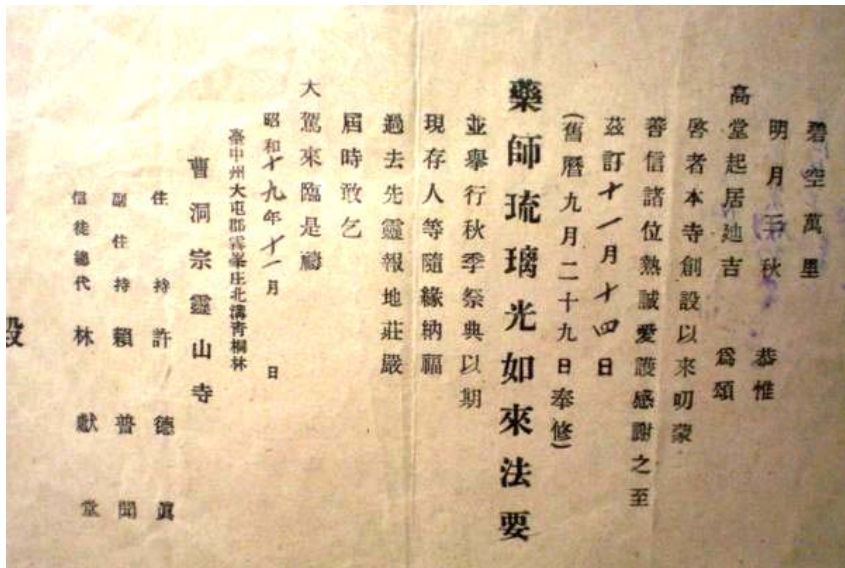 碧空萬里
明月三秋 恭惟
高堂起居迪吉 爲頌
啓者本寺創設以來叨蒙
善信諸位熱誠愛護感謝之至
茲訂十一月十四日
(舊曆九月二十九日奉修)
藥師琉璃光如來法要
並舉行秋季祭典以期
現存人等隨緣納福
過去先靈報地莊嚴
屆時敢乞
大駕來臨是禱
昭和十九年十一月 日
臺中州大屯郡霧峯庄北溝青桐林
曹洞宗靈山寺
住持 許德眞
副住持 賴普聞
信徒總代 林獻堂
殿